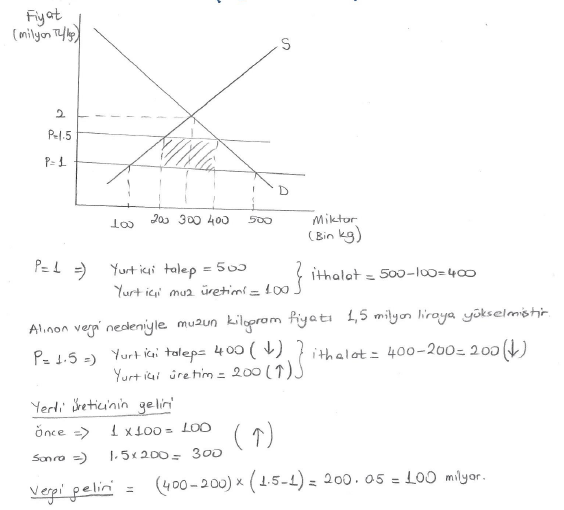 Fiyat
(milyon TL/kg)
S
2
P=1.5
P=1
D
100 200 300 400 500 Miktar
(Bin kg)
P=1 => Yurtiçi talep = 500
Yurtiçi muz üretimi = 100 } ithalat = 500-100=400
Alınan vergi nedeniyle muzun kilogram fiyatı 1,5 milyon liraya yükselmiştir
P=1.5 => Yurtiçi talep= 400 (↓)
Yurtiçi üretim = 200 (↑) } ithalat = 400-200= 200 (↓)
Yerli üreticinin geliri
önce => 1 x 100 = 100
sonra => 1.5 x 200 = 300 (↑)
Vergi geliri = (400-200) x (1.5-1) = 200 . 0.5 = 100 milyar.